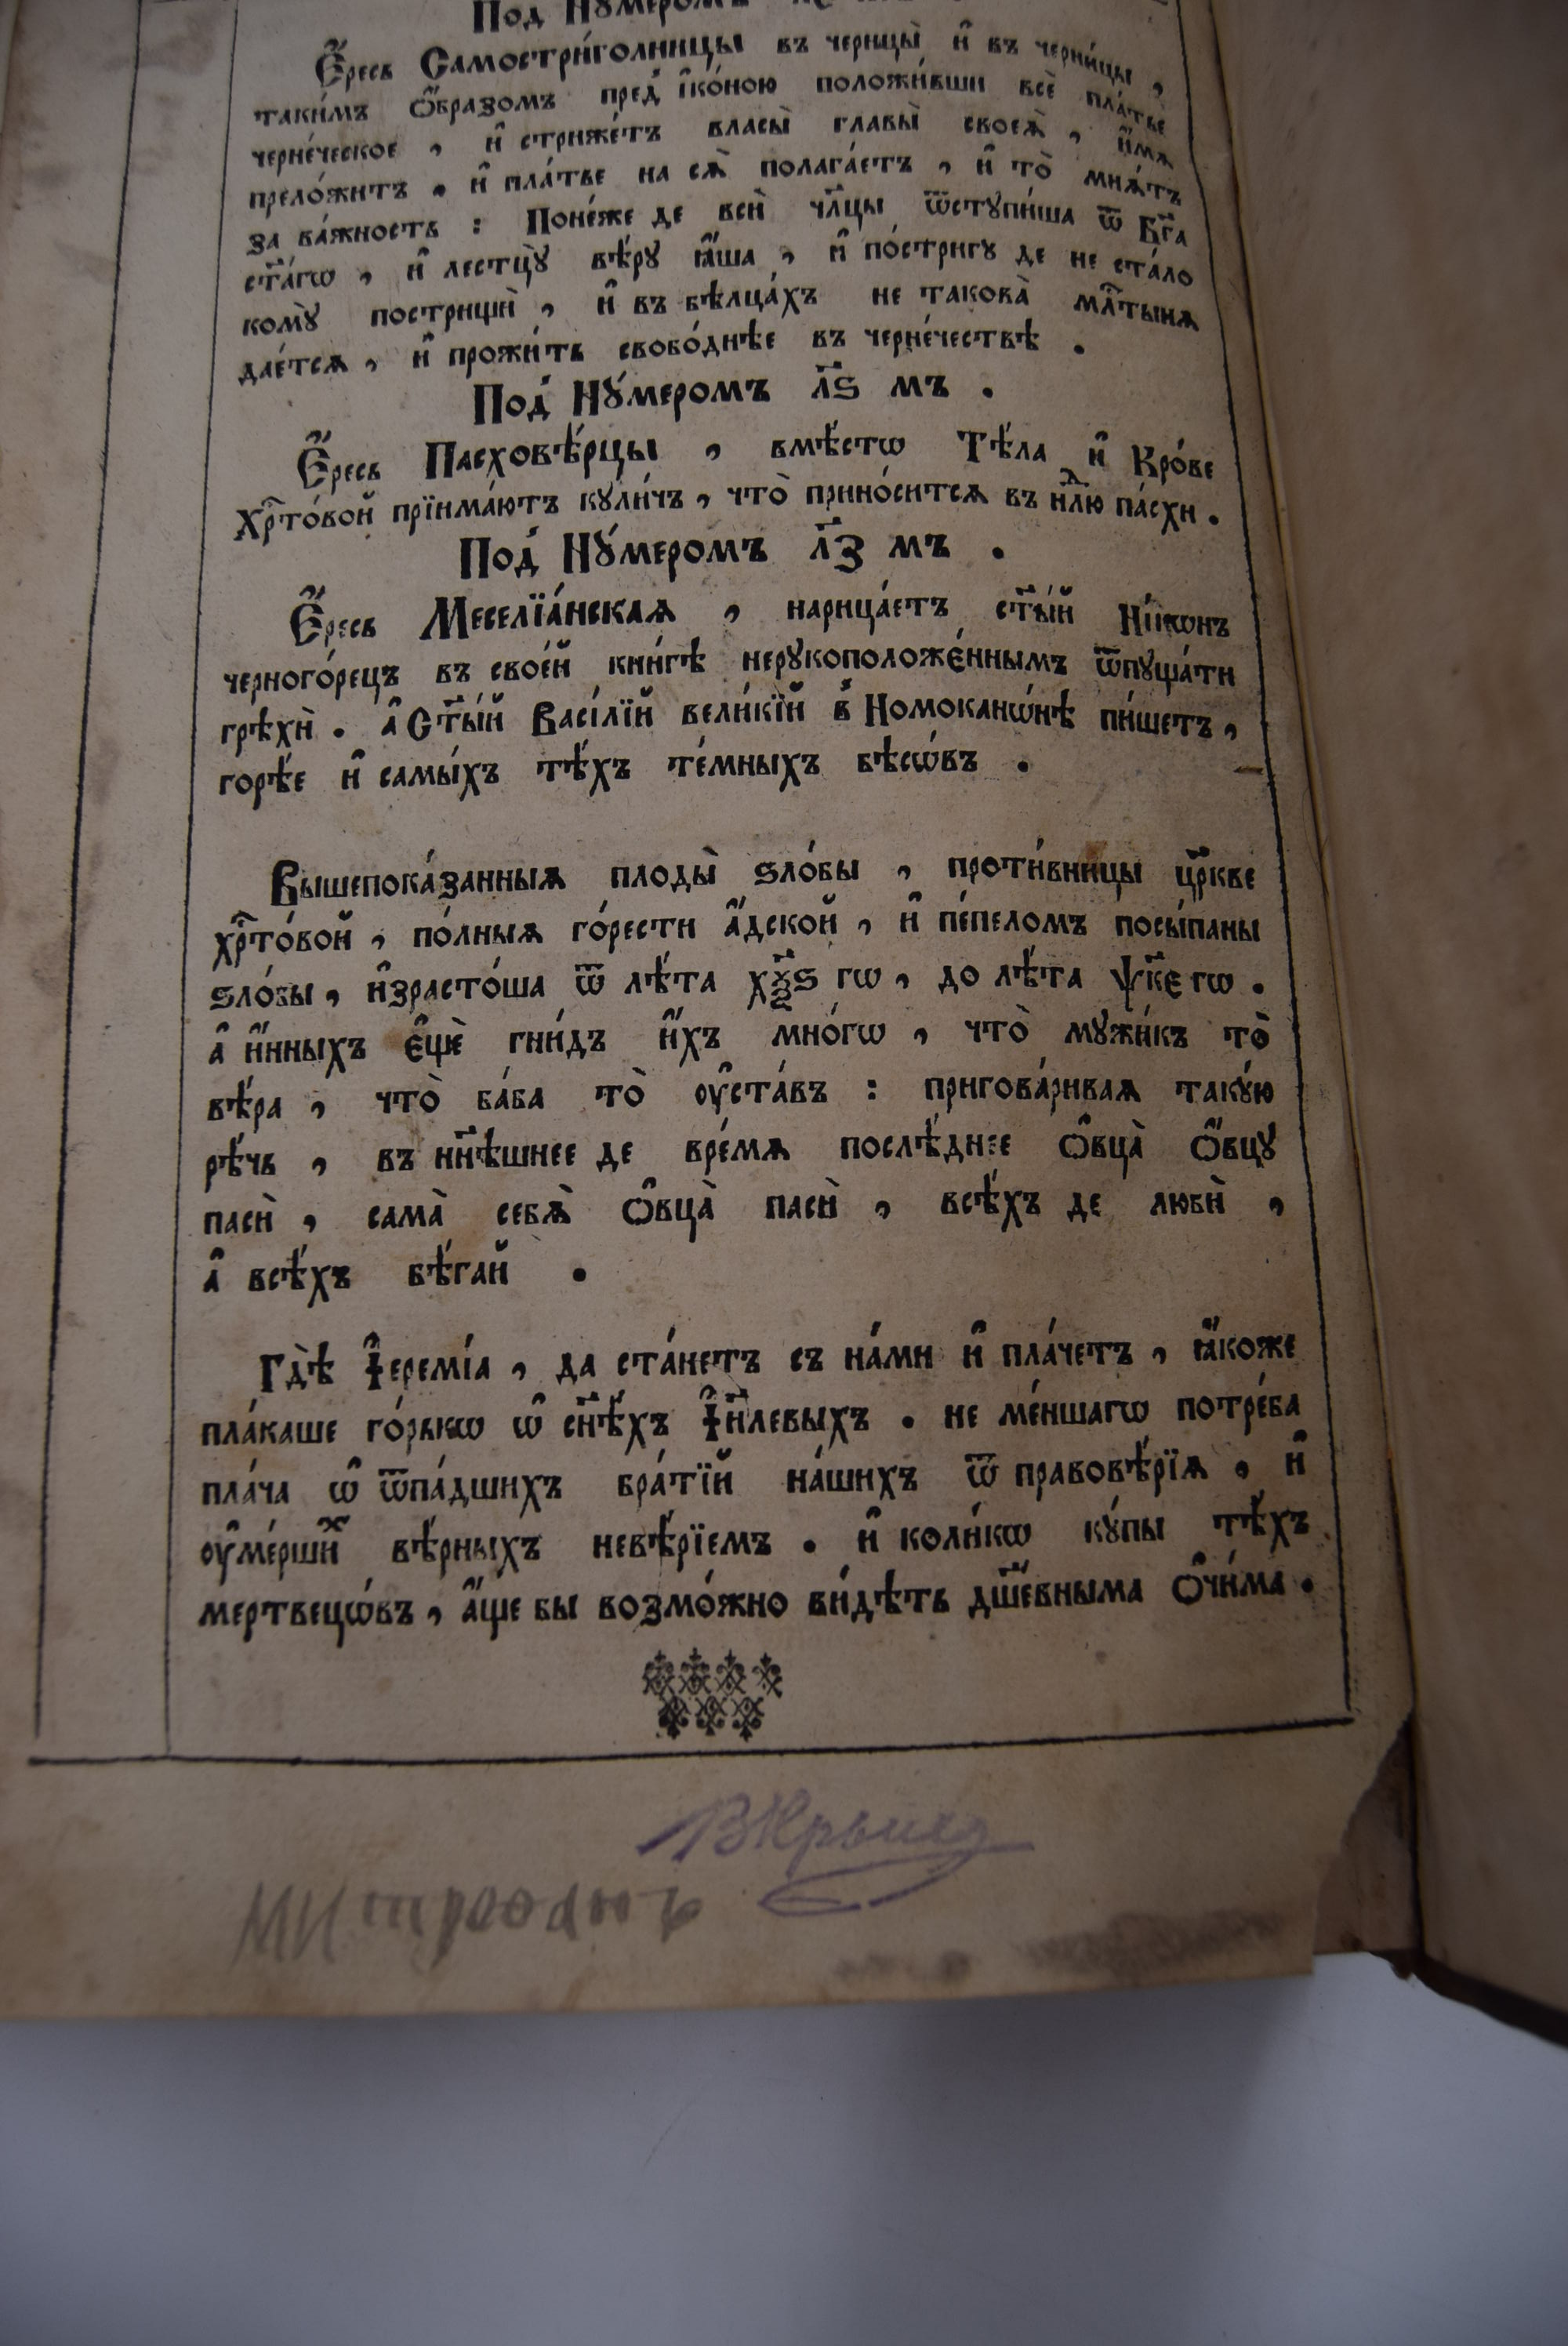 Под Нꙋмеромъ
Є҆́ресь Самостри́голницы въ черицы̀ и҆ въ черни́цы ,
таки́мъ ѡ҆́бразомъ пред̾ і҆ко́ною положи́вши всѐ пла́тье
черне́ческое , и҆ стриже́тъ власы̀ главы̀ своеѧ̀ , и҆́мѧ
прело́житъ , и҆ пла́тье на сѧ̀ полага́етъ , и҆ то̀ мнѧ́тъ
за ва́жность : Поне́же де всѝ чл҃цы ѿстꙋпи́ша ѿ Бг҃а
ст҃а́гѡ , и҆ лестцꙋ̀ вѣ́рꙋ ꙗ҆́ша , и҆ по́стригꙋ де не ста́ло
комꙋ̀ постришѝ , и҆ въ бѣлца́хъ не такова̀ мл҃тынѧ
дае́тсѧ , и҆ прожи́ть свобо́днѣе въ черне́чествѣ .
Под̾ Нꙋ́меромъ л҃ѕ мъ .
Є҆́ресь Пасховѣ́рцы , вмѣ́стѡ Тѣ́ла и҆ Кро́ве
Хрⷭ҇то́вой прїима́ютъ кꙋли́чъ , что̀ прино́ситсѧ въ нⷣлю па́схи .
Под̾ Нꙋ́меромъ л҃з мъ .
Є҆́ресь Меселїа́нскаѧ , нарица́етъ ст҃ы́й Ні́кѡнъ
черного́рецъ въ свое́й кни́гѣ нерꙋкоположе́ннымъ ѿпꙋща́ти
грѣхѝ . а҆ Ст҃ы́й Васі́лїй вели́кїй в̾ Номоканѡ́нѣ пи́шетъ ,
горѣ́е и҆ самы́хъ тѣ́хъ те́мныхъ бѣсѡ́въ .
Вышепока́занныѧ плоды̀ ѕло́бы , проти́вницы цр҃кве
хрⷭ҇то́вой , по́лныѧ го́рести а҆́дской , и҆ пе́пеломъ посы́паны
ѕло́бы , и҆зрасто́ша ѿ лѣ́та хѯ҃ѕ гѡ , до лѣ́та ѱк҃є гѡ .
а҆ и҆́нныхъ є҆щѐ гни́дъ и҆́хъ мно́гѡ , что̀ мꙋжи́къ то̀
вѣ́ра , что̀ ба́ба то̀ ᲂу҆ста́въ : пригова́риваѧ такꙋ́ю
рѣ́чь , въ нн҃ѣшнее де вре́мѧ послѣ́днее ѻ҆вца̀ ѻ҆́вцꙋ
пасѝ , сама̀ себѧ̀ ѻ҆вца̀ пасѝ , всѣ́хъ де любѝ ,
а҆ всѣ́хъ бѣ́гай .
Гдѣ̀ І҆еремі́а , да ста́нетъ съ на́ми и҆ пла́четъ , ꙗ҆́коже
пла́каше го́рькѡ ѡ҆ сн҃ѣ́хъ І҆и҃левыхъ . не ме́ншагѡ потре́ба
пла́ча ѡ҆ ѿпа́дшихъ бра́тїй на́шихъ ѿ правовѣ́рїѧ , и҆
ᲂу҆ме́ршиⷯ вѣ́рныхъ невѣ́рїемъ . и҆ коли́кѡ кꙋ́пы тѣ́хъ
мертвецѡ́въ , а҆́ще бы возмо́жно ви́дѣть дш҃е́вныма ѻ҆чи́ма .